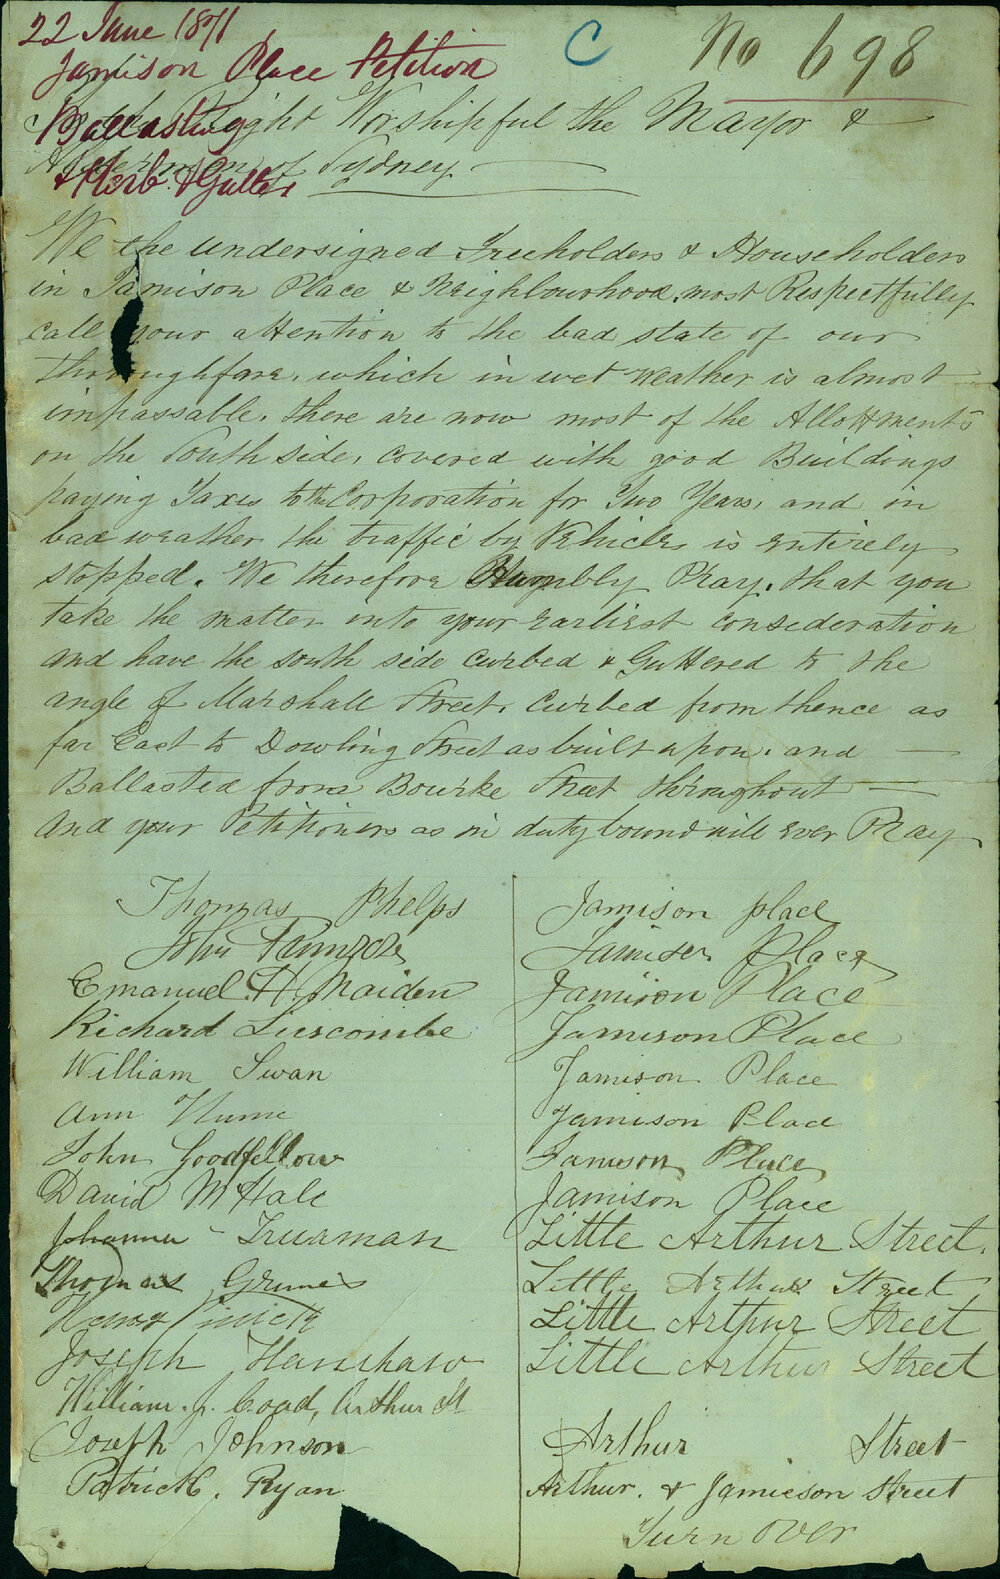 22 June 1871
Jamison Place Petition
C
No 698
Ballasting
& Kerb & Gutter
Right Worshipful the Mayor &
Aldermen of Sydney
We the undersigned Freeholders & Householders
in Jamison Place & Neighbourhood, most Respectfully
call your attention to the bad state of our
thoroughfare, which in wet weather is almost
impassable. there are now most of the Allottments
on the South side, covered with good Buildings
paying Taxes to the Corporation for Two Years, and in
bad weather the traffic by Vehicles is entirely
stopped. We therefore Humbly Pray, that you
take the matter into your earliest consideration
and have the south side curbed & Guttered to the
angle of Marshall Street, Curbed from thence as
far East to Dowling Street as built upon. and
Ballasted from Bourke Street throughout
And your Petitioners as in duty bound will ever Pray
Thomas Phelps Jamison place
John Jamison Place
Emanuel H. Maiden Jamison Place
Richard Luscombe Jamison Place
William Swan Jamison Place
Ann Hume Jamison Place
John Goodfellow Jamison Place
David McHale Jamison Place
Johanna Trueman Little Arthur Street.
Thomas Grimes Little Arthur Street
Little Arthur Street
Joseph Hanshaw Little Arthur Street
William. J. Coad, Arthur St
Joseph Johnson Arthur Street
Patrick. Ryan Arthur. & Jamieson Street
Turn Over